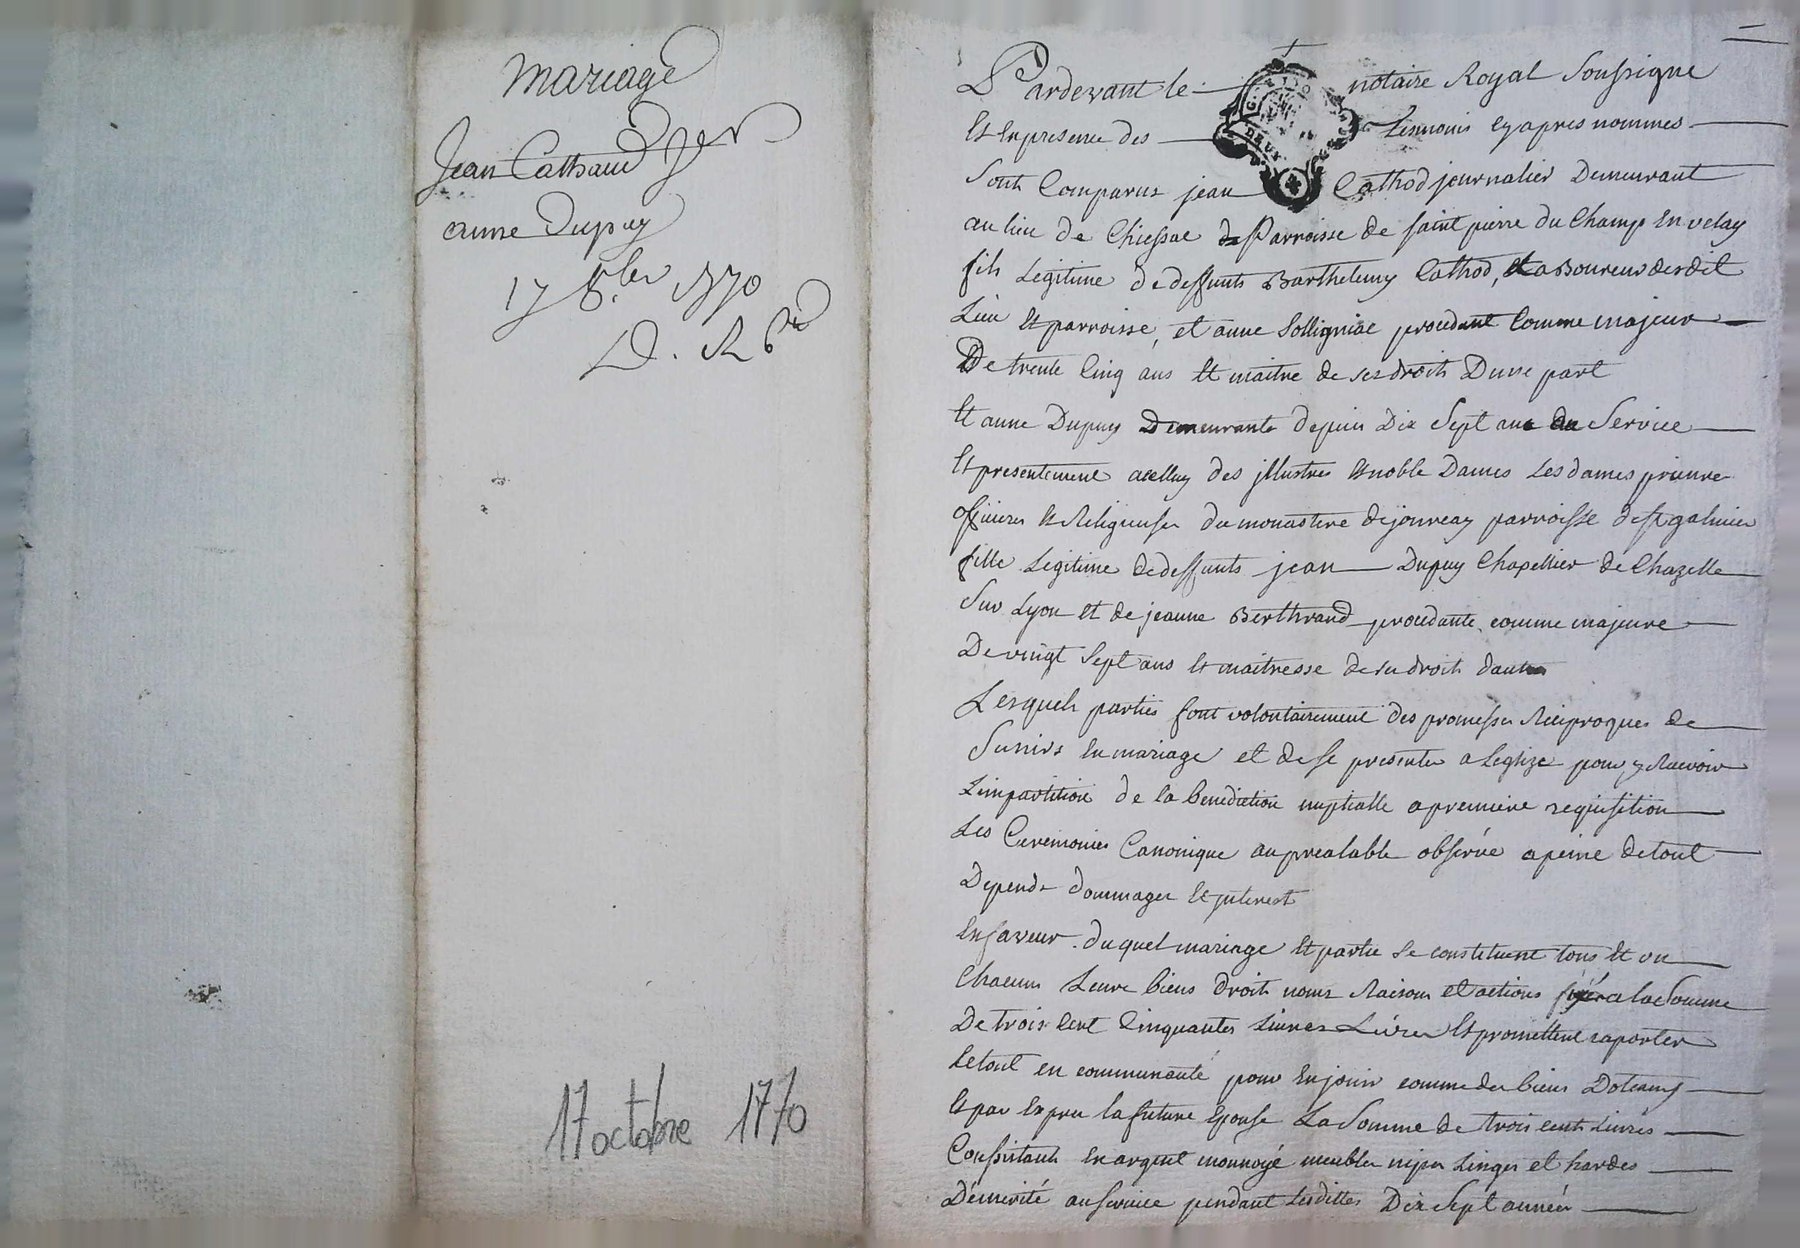 mariage
Jean Cathaud
anne Dupuy
17 8.bre 1770
D. R
17 octobre 1770
Pardevant le notaire Royal Soussigne
Et En presence des temoins Cy apres nommes
Sont Comparus jean Cathod journalier Demeurant
au lieu de Chiessac Parroisse de saint pierre du Champ En velay
fils Legitime de deffunts Barthelemy Cathod, Laboureur dudit
Lieu Et parroisse, et anne Solligniac procedant Comme majeur
De trente Cinq ans Et maitre de ses droits Dune part
Et anne Dupuy Demeurante depuis Dix Sept ans au Service
Et presentement acelluy des jllustres Et noble Dames Les dames prieure
officieres Et Religieuses du monastere dejourcay parroisse de st galmier
fille Legitime de deffunts jean Dupuy Chapellier de Chazelle
Sur Lyon et de jeanne Berthrand procedante comme majeure
De vingt Sept ans Et maitresse de ses droits dautre
Lesquels parties font volontairement des promesses Reciproques de
Sunirs En mariage et de se presenter a Leglize pour y Recevoir
Limpartition de la benediction nuptialle a premiere requisition
Les Ceremonies Canonique au prealable observée a peine de tout
Depends dommages Et jnterest
En faveur duquel mariage Et partie Se constituent tous Et un
Chacun Leurs biens droits noms Raisons et actions a la Somme
De trois Cent Cinquantes Livres Livres Et promettent raporter
Le tout en communauté pour En jouir comme des biens Doteaux
Et par Expru la future Epouse La Somme de trois cents Livres
Consistants En argent monnoyé meubles nipes Linges et hardes
Démerité au service pendant Lesdittes Dix Sept années